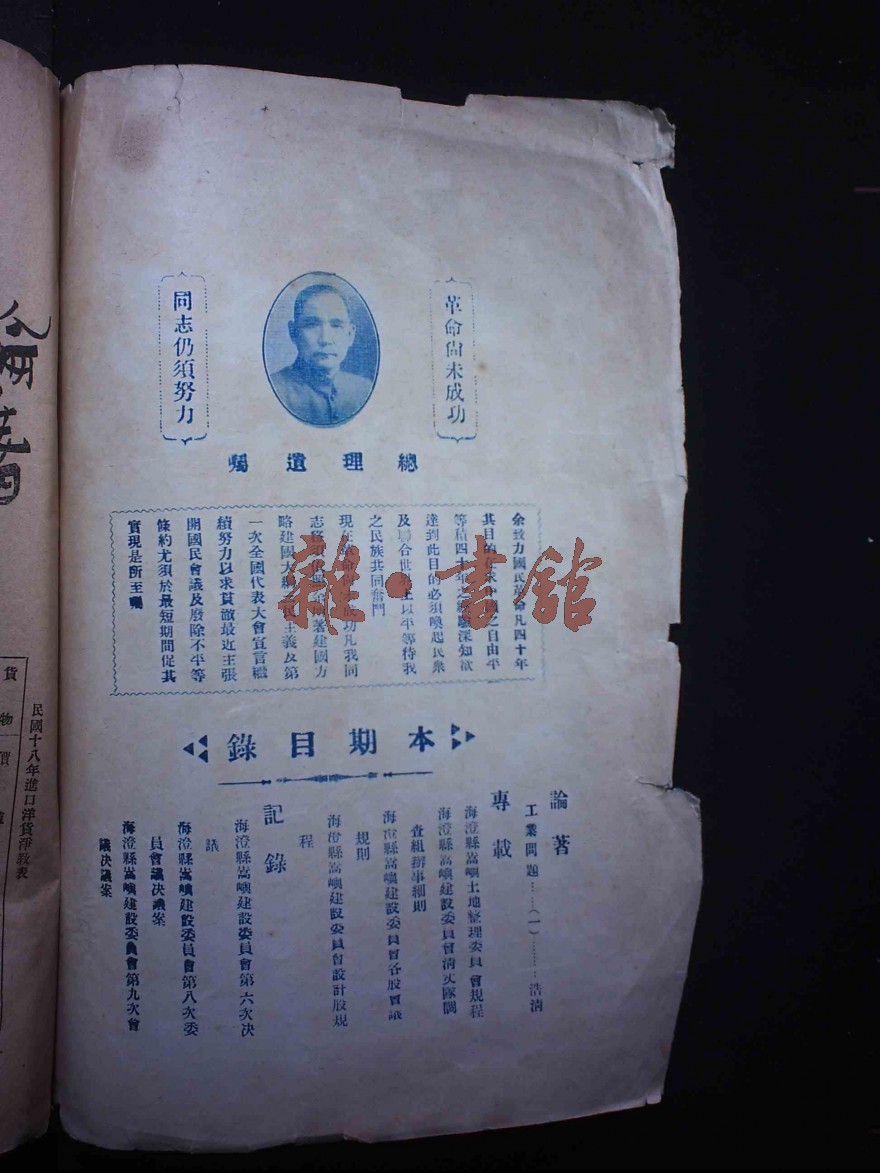 革命尙未成功
同志仍須努力
總理遺囑
余致力國民革命凡四十年
其目的在求中國之自由平
等積四十年之經驗深知欲
達到此目的必須喚起民衆
及聯合世界上以平等待我
之民族共同奮鬥
現在革命尙未成功凡我同
志務須依照余所著建國方
略建國大綱三民主義及第
一次全國代表大會宣言繼
續努力以求貫澈最近主張
開國民會議及廢除不平等
條約尤須於最短期間促其
實現是所至囑
雜·書館
本期目錄
論著
工業問題……(一)………浩淸
專載
海澄縣嵩嶼土地整理委員會規程
海澄縣嵩嶼建設委員會淸丈隊調
查組辦事細則
海澄縣嵩嶼建設委員會各股會議
規則
海澄縣嵩嶼建設委員會設計股規
程
記錄
海澄縣嵩嶼建設委員會第六次決
議
海澄縣嵩嶼建設委員會第八次委
員會議決議案
海澄縣嵩嶼建設委員會第九次會
議決議案
論著
民國十八年進口洋貨淨數表
貨物價